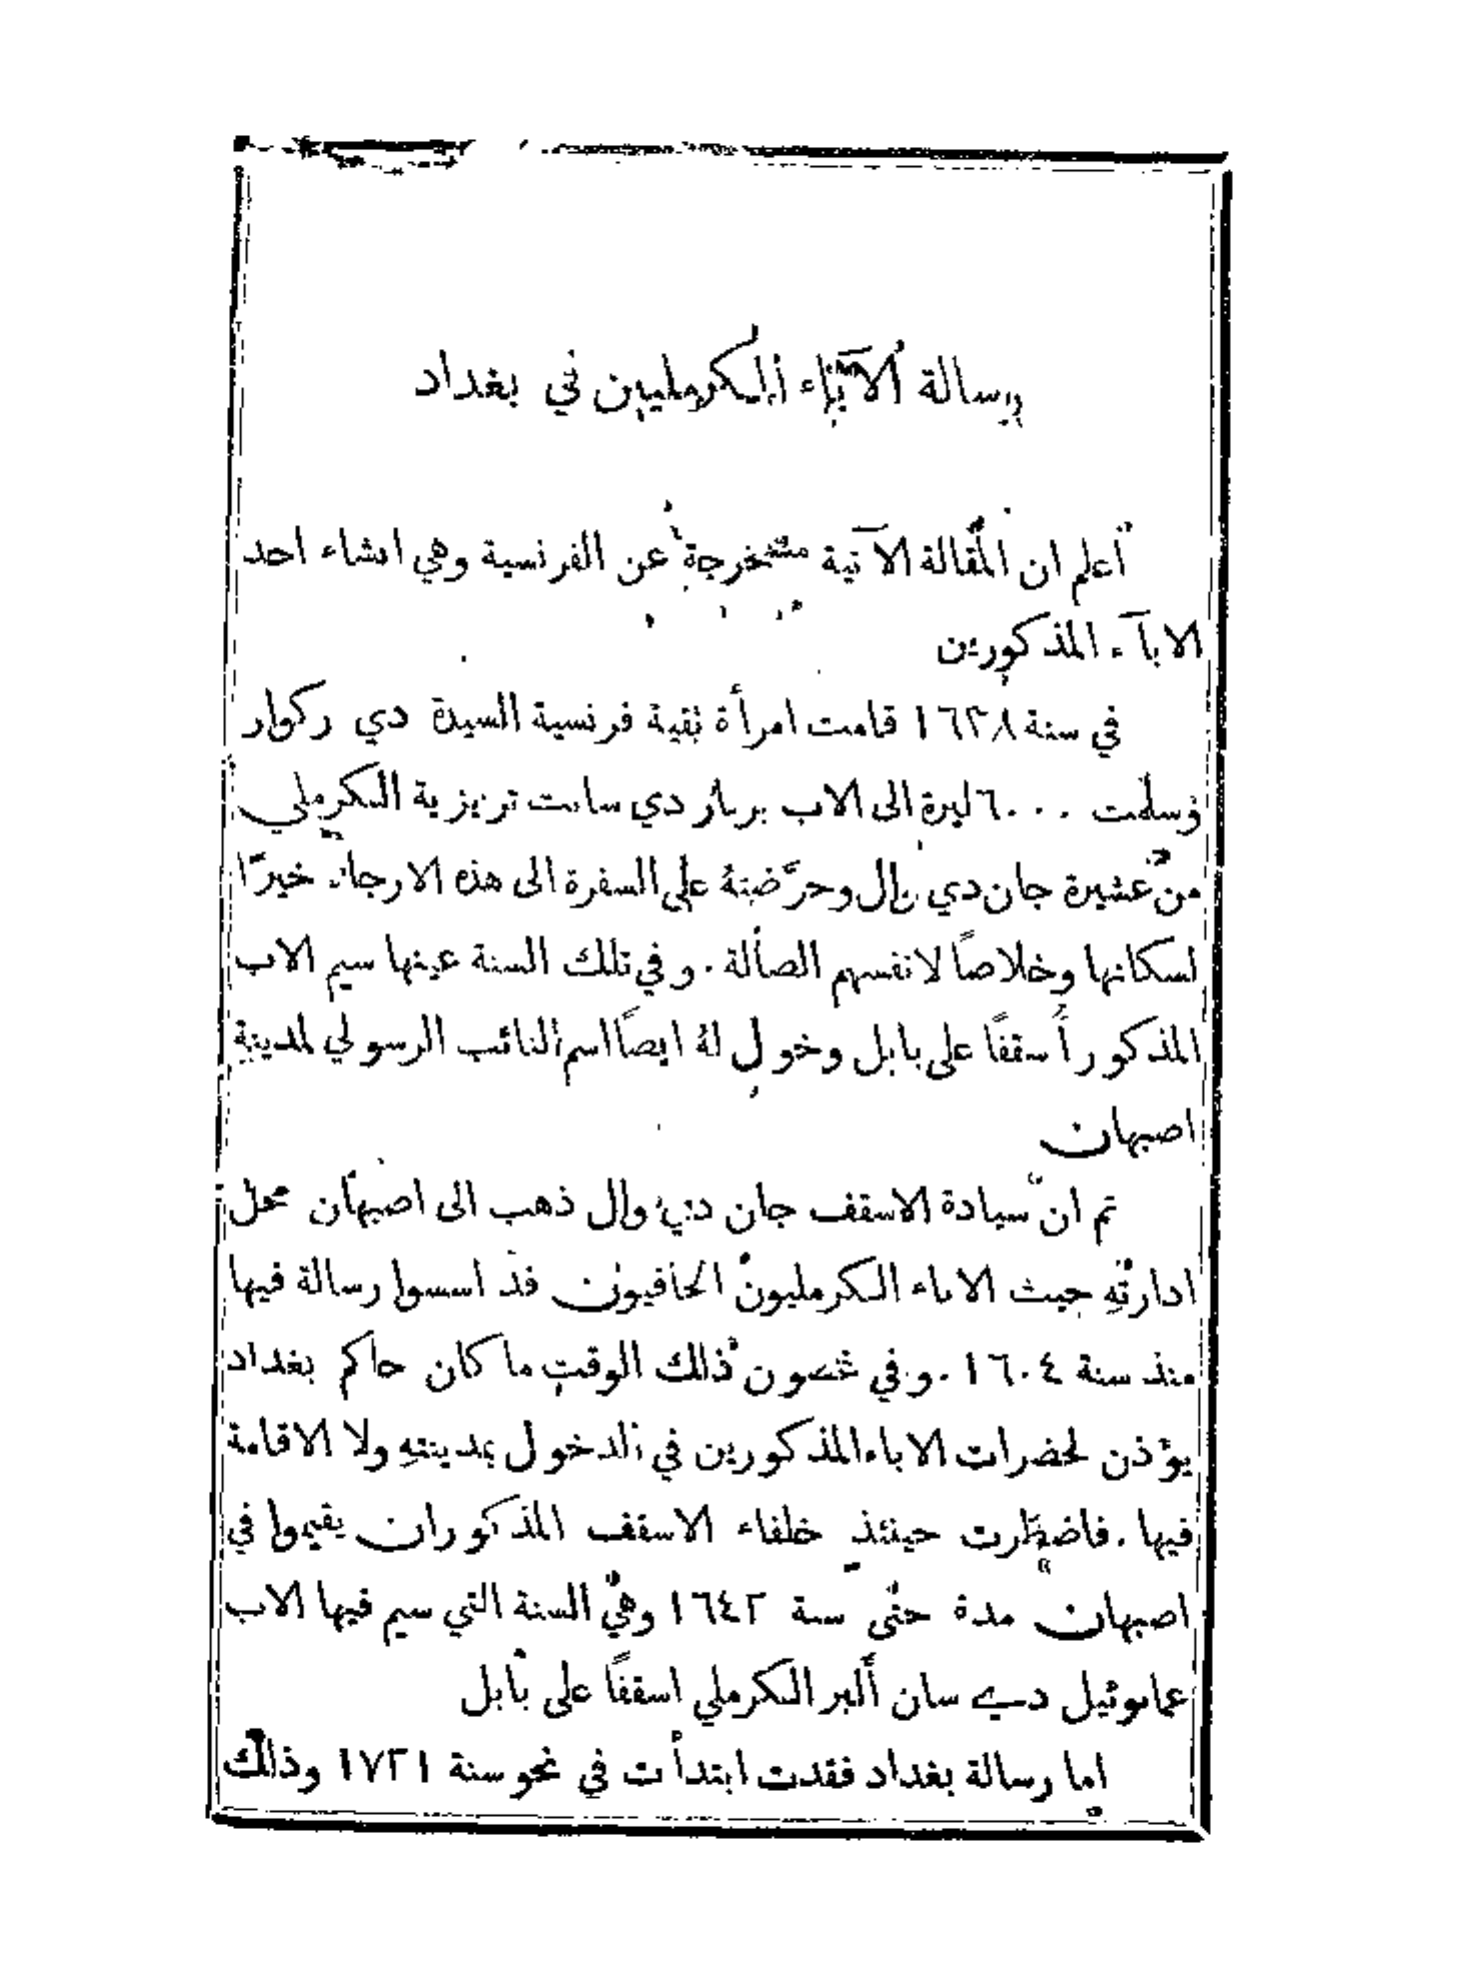 رسالة الآباء الكرمليين في بغداد
أعلم ان المقالة الآتية مستخرجة عن الفرنسية وهي انشاء احد
الابآء المذكورين
في سنة ١٦٣٨ قامت امرأة تقية فرنسية السيدة دي ركوار
وسلمت ٦٠٠٠ ليرة الى الاب برنار دي سانت تريزية الكرملي
من عشيرة جان دي وال وحرَّضتهُ على السفرة الى هذه الارجاء خيرًا
لسكانها وخلاصًا لانفسهم الضالة . وفي تلك السنة عينها سيم الاب
المذكور أسقفًا على بابل وخول لهُ ايضًا اسم النائب الرسولي لمدينة
اصبهان
ثم ان سيادة الاسقف جان دي وال ذهب الى اصبهان محل
ادارتهِ حيث الاباء الكرمليون الحافيون قد اسسوا رسالة فيها
منذ سنة ١٦٠٤ . وفي غضون ذلك الوقت ما كان حاكم بغداد
يؤذن لحضرات الاباء المذكورين في الدخول بمدينتهِ ولا الاقامة
فيها . فاضطرت حينئذ خلفاء الاسقف المذكور ان يقيموا في
اصبهان مدة حتى سنة ١٦٤٢ وهي السنة التي سيم فيها الاب
عمانوئيل دي سان ألبر الكرملي اسقفًا على بابل
اما رسالة بغداد فقدت ابتدأت في نحو سنة ١٧٢١ وذلك